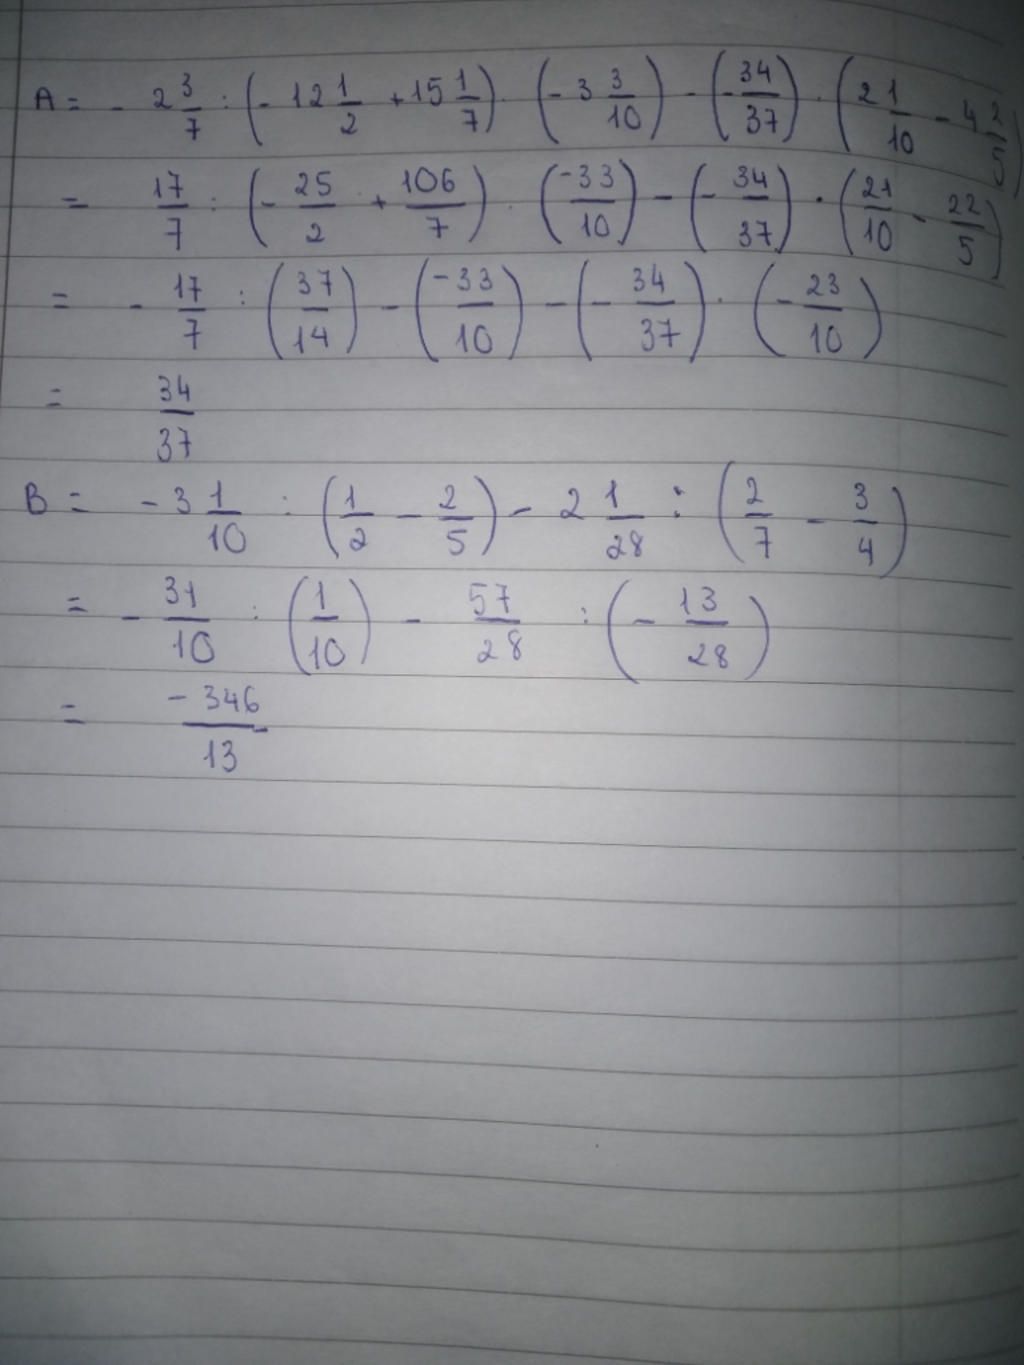 A = - 2 3/7 : (- 12 1/2 + 15 1/7) . (- 3 3/10) - (- 34/37) . (21/10 - 4 2/5)
= 17/7 : (- 25/2 + 106/7) . (-33/10) - (- 34/37) . (21/10 - 22/5)
= - 17/7 : (37/14) - (-33/10) - (- 34/37) . (- 23/10)
= 34/37
B = - 3 1/10 : (1/2 - 2/5) - 2 1/28 : (2/7 - 3/4)
= - 31/10 : (1/10) - 57/28 : (- 13/28)
= -346/13